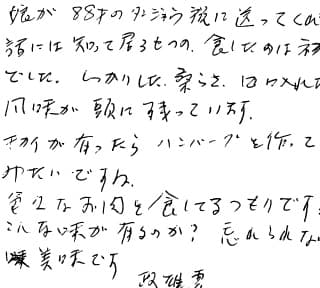 娘が 88才のタンジョウ祝に送ってくれ
話には知って居るものの、食したのは初
でした。しっかりした柔らさ、口に入れた
風味が頭に残っています。
キカイが有ったら ハンバーグを作って
みたいですね。
貴重なお肉を食してるつもりです
こんな味が有るのか? 忘れられな
美味です